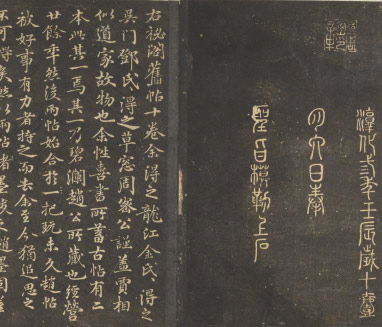 淳化三年壬辰歲十一
月六日奉
聖旨模勒上石
右祕閣舊帖十卷余淂之龍江金氏淂之
吳門鄧氏淂之草窓周密公謹蓋賈相
似道家故物也余性喜書所蓄古帖有二
本此其一焉其一乃碧瀾趙公所藏也經營
廿餘年然後兩帖始合于一把玩未久趙帖
被好事有力者持之而去余至今猶追思之
不可得矣然以兩帖